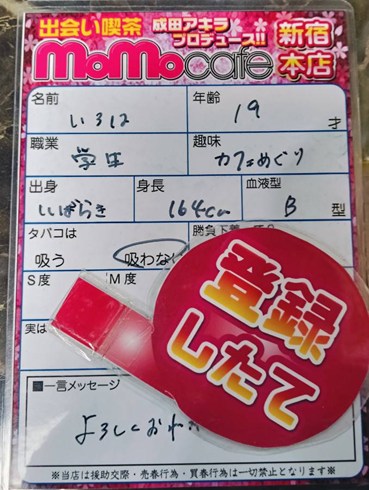 出会い喫茶 成田アキラプロデュース!! 新宿本店
MoMocafe
名前 いろは 年齢 19 才
職業 学生 趣味 カフェめぐり
出身 いばらき 身長 164cm 血液型 B 型
タバコは
吸う 吸わない
S度 M度
実は
登録
したて
■一言メッセージ
よろしくおね
※当店は援助交際・売春行為・買春行為は一切禁止となります※